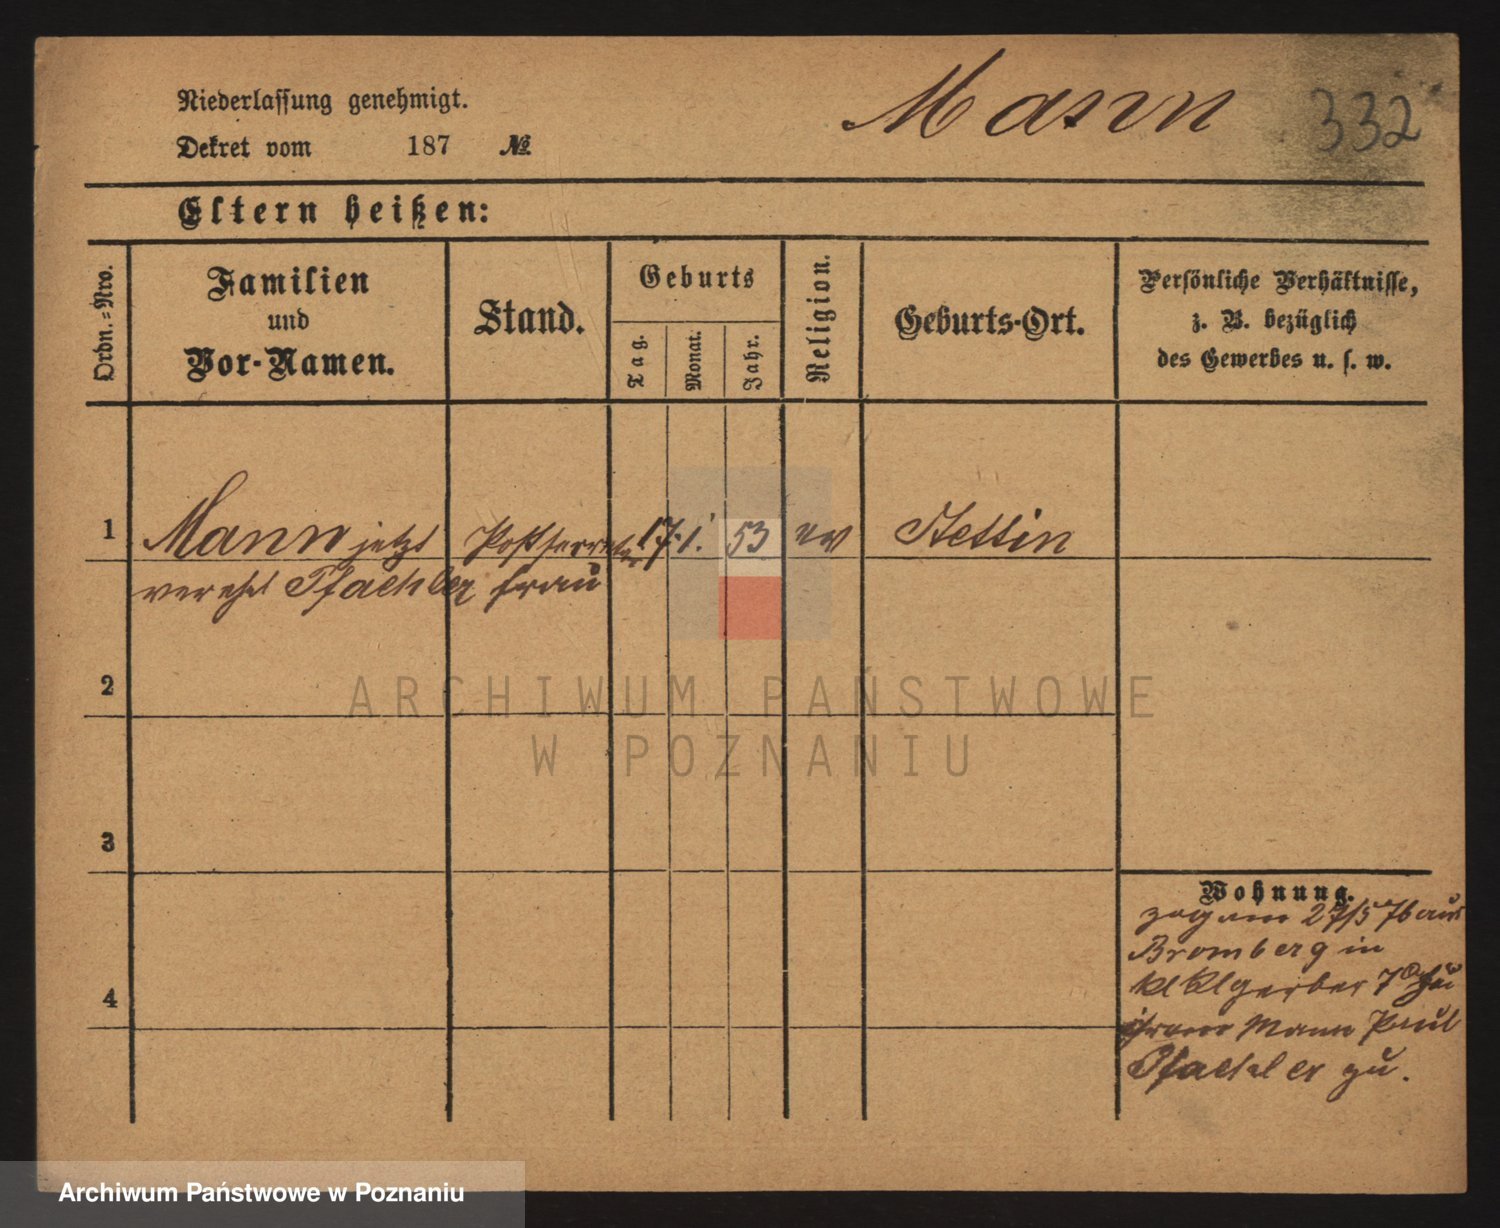 Niederlassung genehmigt.
Mann
332
Dekret vom 187 №
Eltern heißen:
Ordn.-Nro.
Familien und Vor-Namen.
Stand.
Geburts
Tag.
Monat.
Jahr.
Religion.
Geburts-Ort.
Persönliche Verhältnisse,
z. B. bezüglich
des Gewerbes u. s. w.
1 Mann jetzt 17. 1. 53 ev Stettin
verehl Pfaehler frau
2
ARCHIWUM PAŃSTWOWE
W POZNANIU
3
Wohnung.
zog am 27/5 76 aus
Bromberg in
gerber 7 zu
ihrem Mann Paul
Pfaehler zu.
4
Archiwum Państwowe w Poznaniu